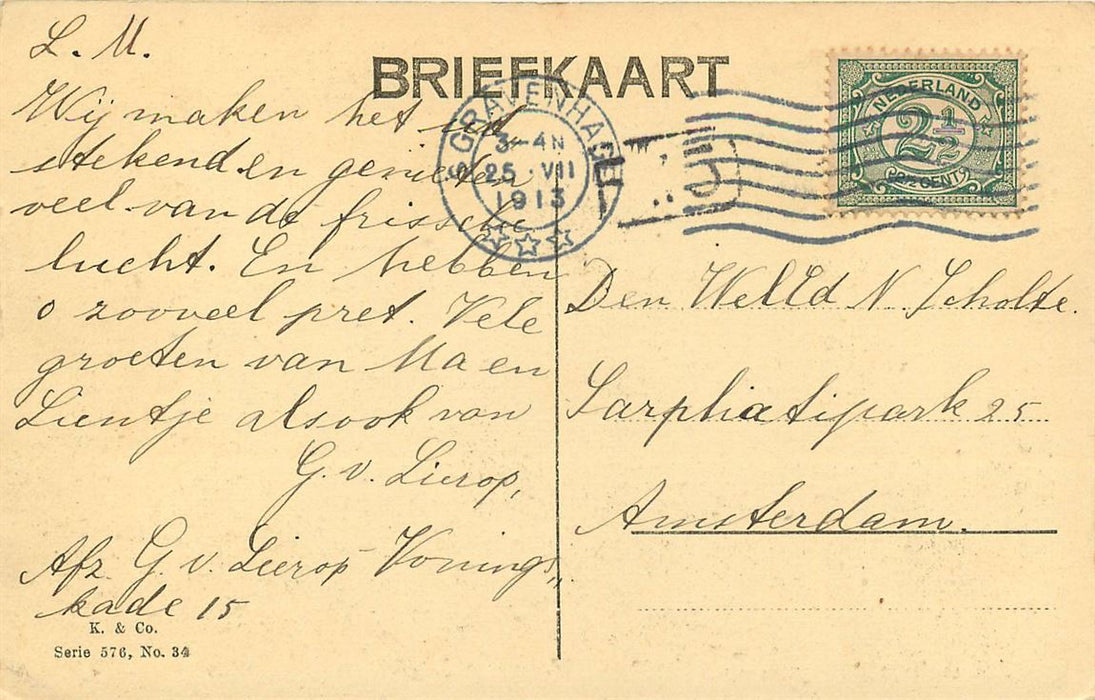 BRIEFKAART
L. M.
Wij maken het uit
stekend en genieten
veel van de frissche
lucht. En hebben
o zooveel pret. Vele
groeten van Ma en
Lientje alsook van
G. v. Lierop,
Afz. G. v. Lierop Konings„
kade 15
K. & Co.
Serie 576, No. 34
'S GRAVENHAGE
3-4 N
25 VII
1913
NEDERLAND
2½
2½ CENT
Den WelEd N. Scholte.
Sarphatipark 25
Amsterdam.